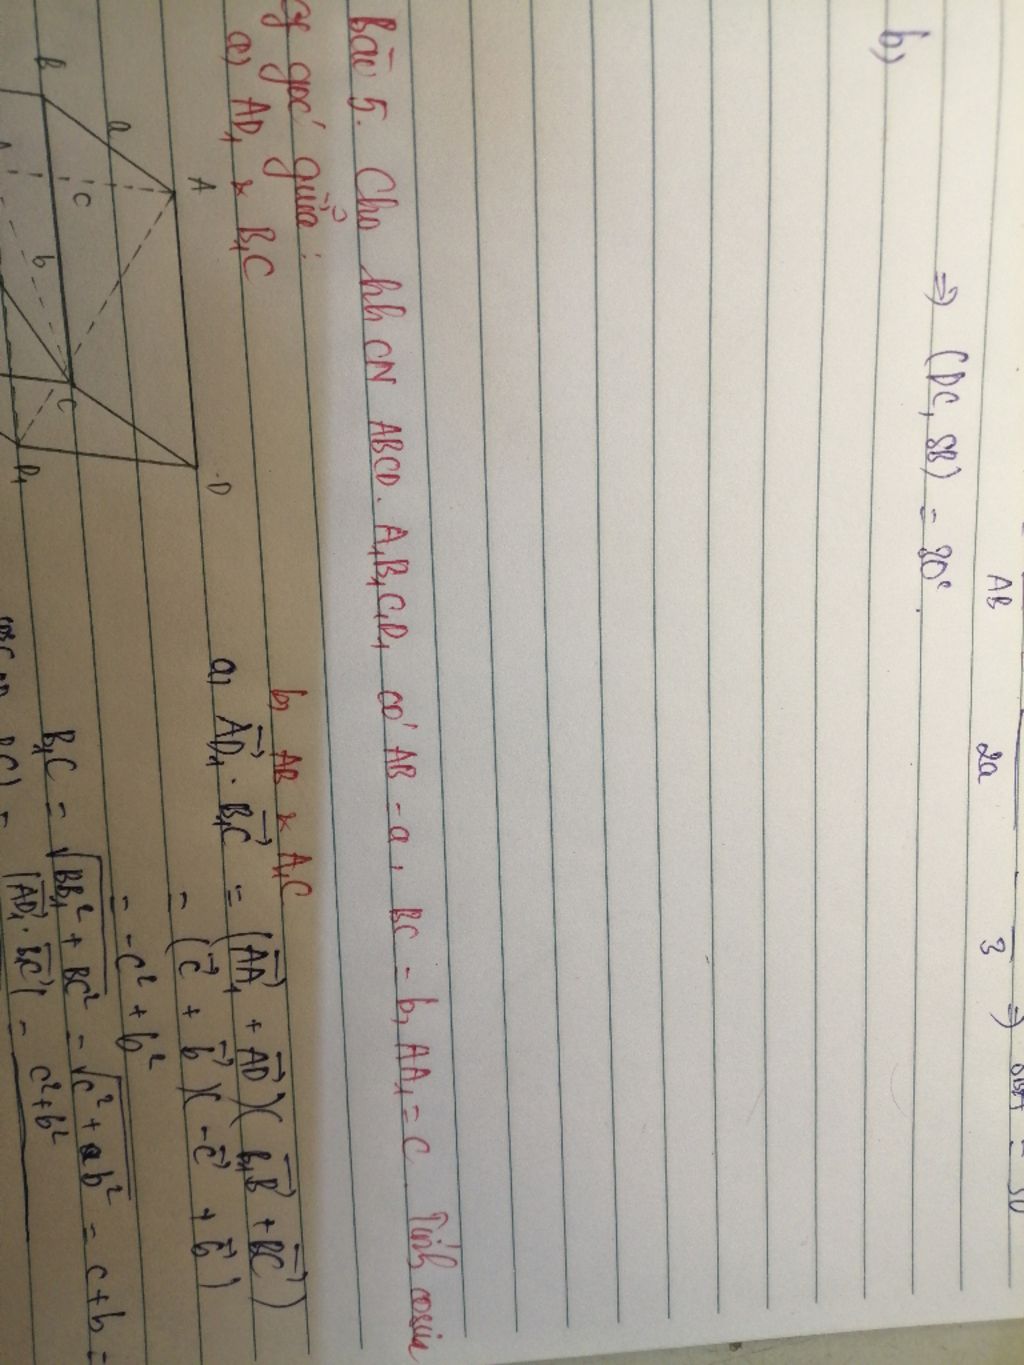 AB 2a 3 ⇒
⇒ (DC, SB) = 80°.
b)
Bài 5. Cho hh CN ABCD.A₁B₁C₁D₁ có AB = a, BC = b, AA₁ = c. Tính cosin
góc giữa:
a) AD₁ x B₁C b, AB x A₁C
a, AD₁→ . B₁C→ = (AA₁→ + AD→)(B₁B→ + BC→)
= (c→ + b→)(-c→ + b→)
= -c² + b²
B₁C = √BB₁² + BC² = √c² + b² = c+b =
|AD₁→ . B₁C→| = c²+b²
A
D
B
C
D₁
a
b
c